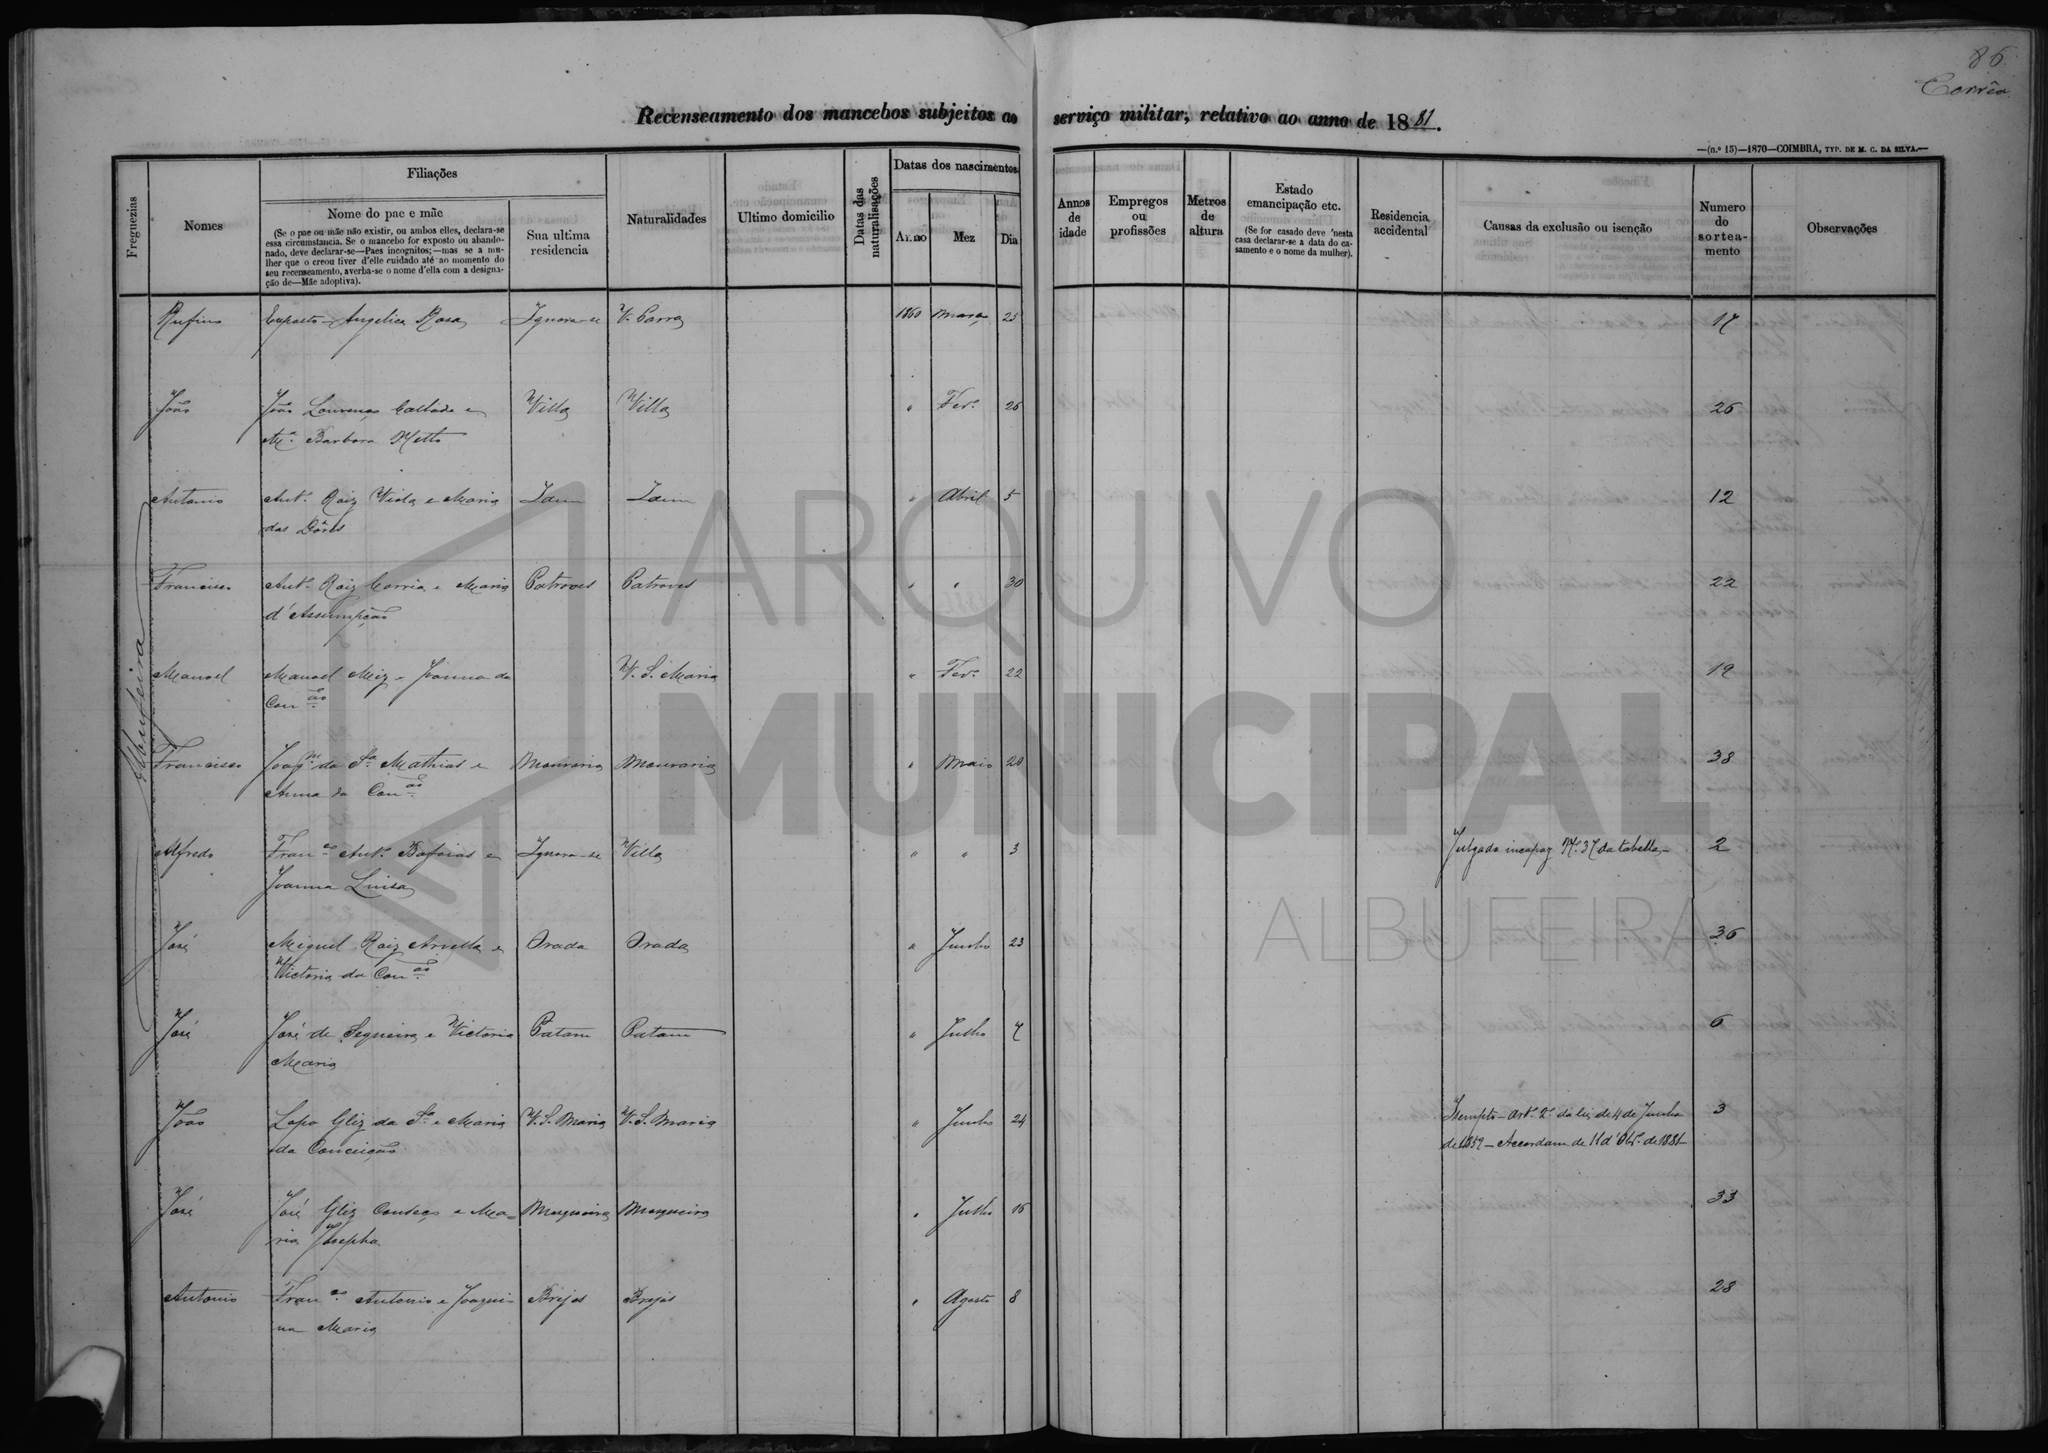 86
Corrêa
Recenseamento dos mancebos subjeitos ao serviço militar, relativo ao anno de 1881.
—(n.º 15)—1870—COIMBRA, TYP. DE M. C. DA SILVA.—
Freguezias
Nomes
Filiações
Nome do pae e mãe
(Se o pae ou mãe não existir, ou ambos elles, declara-se
essa circumstancia. Se o mancebo for exposto ou abando-
nado, deve declarar-se—Paes incognitos;—mas se a mu-
lher que o creou tiver d'elle cuidado até ao momento do
seu recenseamento, averba-se o nome d'ella com a designa-
ção de—Mãe adoptiva).
Sua ultima
residencia
Naturalidades
Ultimo domicilio
Datas das
naturalisações
Datas dos nascimentos
Anno
Mez
Dia
Annos
de
idade
Empregos
ou
profissões
Metros
de
altura
Estado
emancipação etc.
(Se for casado deve 'nesta
casa declarar-se a data do ca-
samento e o nome da mulher).
Residencia
accidental
Causas da exclusão ou isenção
Numero
do
sortea-
mento
Observações
Albufeira
Rufino Exposto - Angelica Rosa Ignora-se 1860 Março 25 17
João João Lourenço Callado e Villa Villa " Fev.º 26 26
M.ª Barbara Netto
Antonio Ant.º Roiz Viola e Maria Idem Idem " Abril 5 12
das Dôres
Francisco Ant.º Roiz Correia e Maria Patroves Patroves " " 30 22
d'Assumpção
Manoel Manoel Miz e Joanna da V. S. Maria " Fev.º 22 19
Con.ção
Francisco Joaq.m da S.ª Mathias e Mouraria Mouraria " Maio 20 38
Anna da Con.ção
Alfredo Fran.co Ant.º e Ignora-se Villa " " 3 Julgado incapaz N.º 37 da tabella 2
Joanna Luisa
José Miguel Roiz e Orada Orada " Junho 23 36
Victoria da Con.ção
José José de Sequeira e Victoria Patam Patam " Julho 7 6
Maria
João Lopo Glz da S.ª e Maria V. S. Maria V. S. Maria " Junho 24 Isempto - art.º 2.º da lei de 4 de Junho 3
da Conceição de 1859 - Accordam de 11 d'Otb.º de 1881
José José Glz e Ma- Mosqueira Mosqueira " Julho 16 33
ria Josepha
Antonio Fran.co Antonio e Joaqui- Brejos Brejos " Agosto 8 28
na Maria
ARQUIVO
MUNICIPAL
ALBUFEIRA